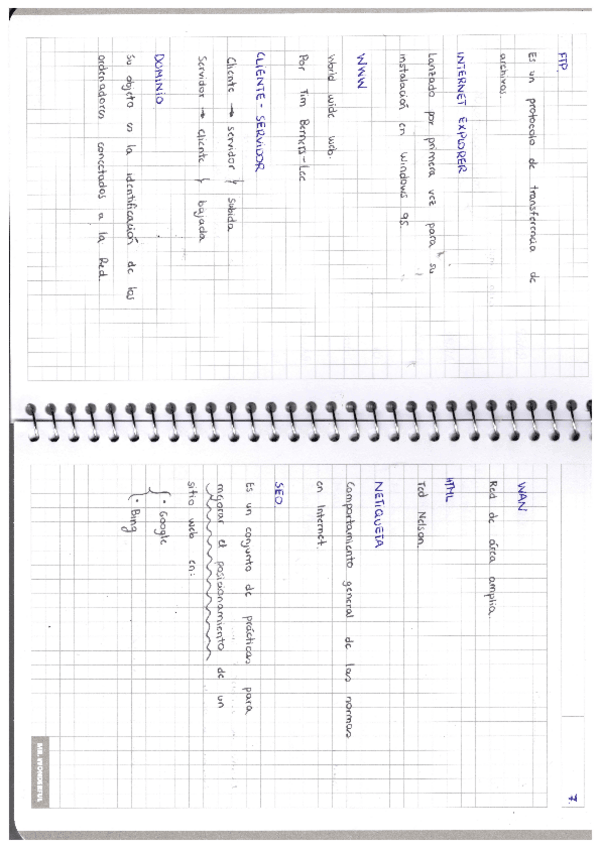 FTP.
Es un protocolo de transferencia de
archivos.
INTERNET EXPLORER
Lanzado por primera vez para su
instalación en Windows 95.
WWW
World wide web.
Por Tim Berners-Lee
CLIENTE - SERVIDOR
Cliente → servidor } subida
Servidor → cliente } bajada
DOMINIO
Su objeto es la identificación de los
ordenadores conectados a la Red.
7.
WAN
Red de área amplia.
HTML
Ted Nelson.
NETIQUETA
Comportamiento general de las normas
en Internet.
SEO
Es un conjunto de prácticas para
mejorar el posicionamiento de un
sitio web en:
{ • Google
• Bing
MR. WONDERFUL